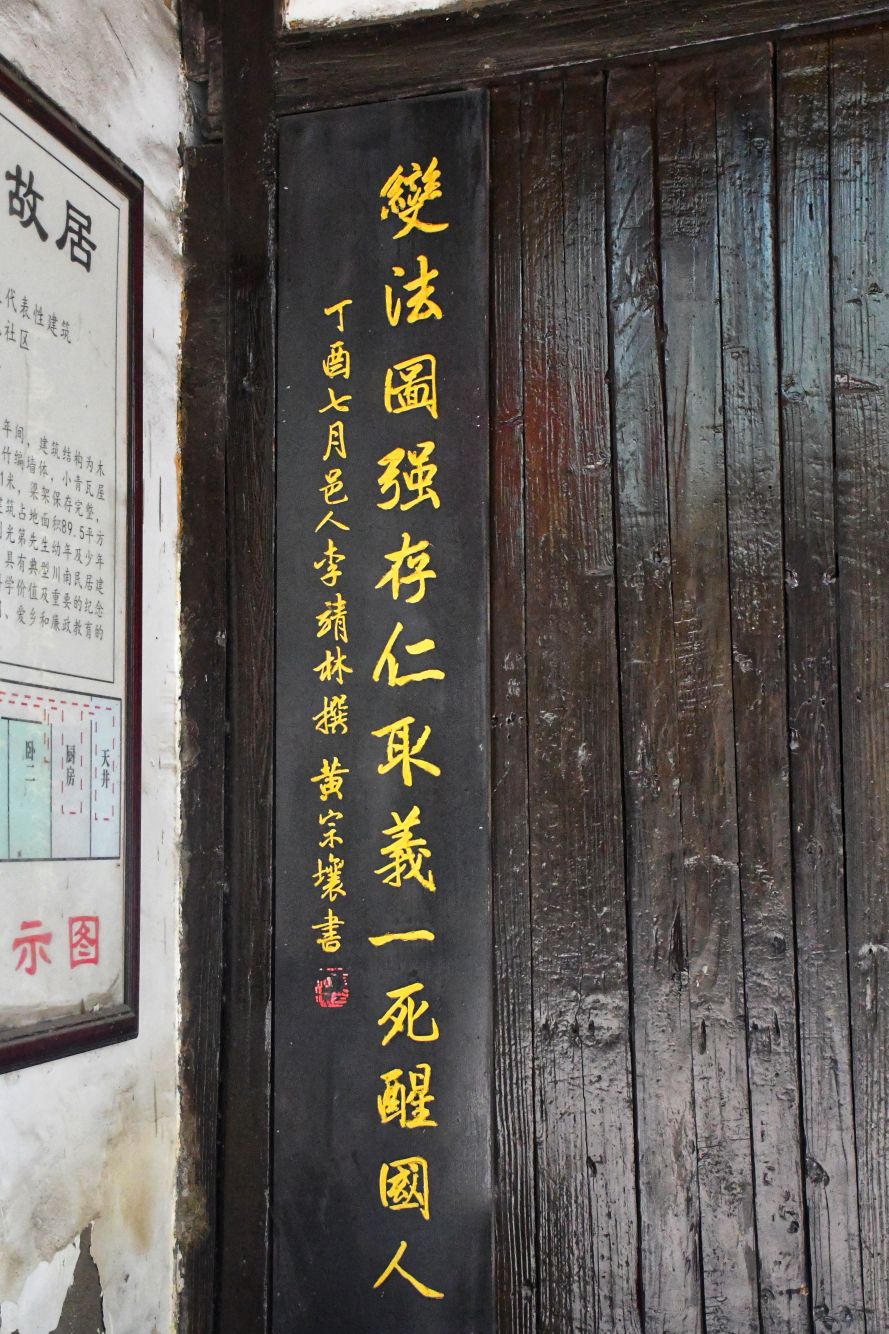 故居
代表性建筑
社区
年间，建筑结构为木
竹编墙体，小青瓦屋
米，梁架保存完整，
建筑占地面积89.5平方
光第先生幼年及少年
具有典型川南民居建
学价值及重要的纪念
、爱乡和廉政教育的
卧二
厨房
天井
示图
變法圖强存仁取義一死醒國人
丁酉七月邑人李靖林撰 黄宗壤書